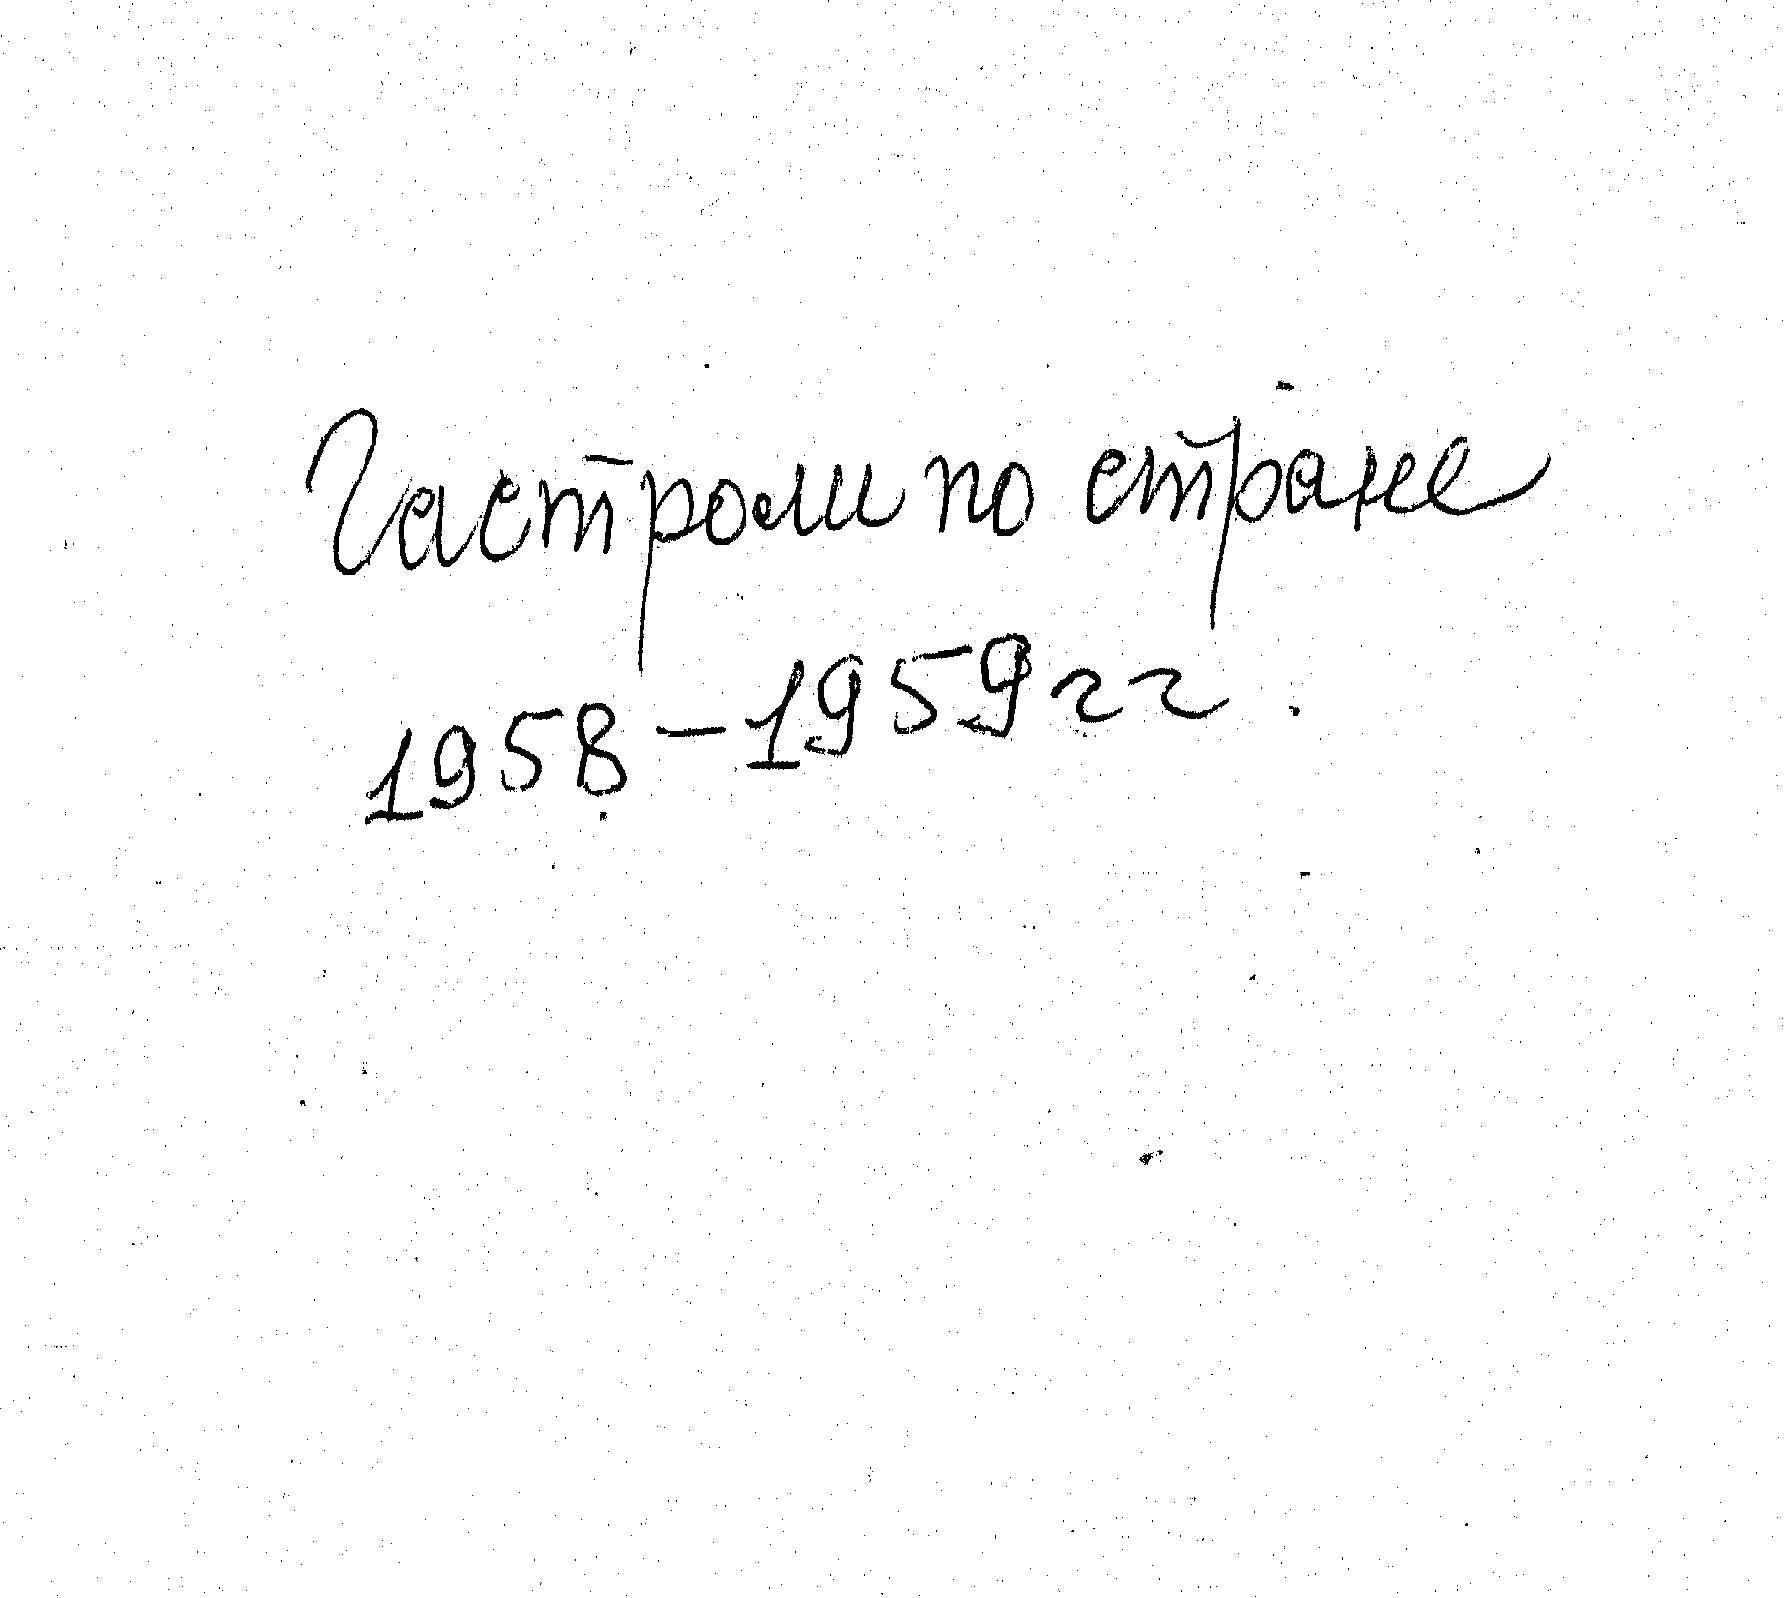 Гастроли по стране
1958-1959 гг.